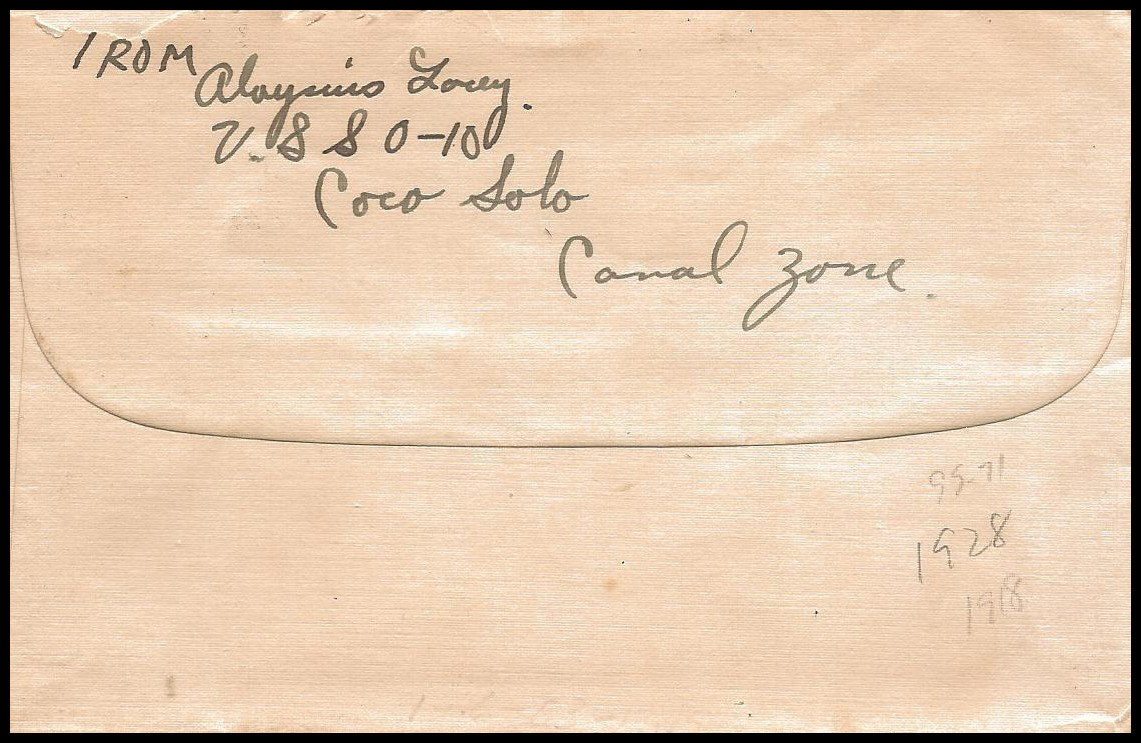 FROM
Aloysius Lacey.
U.S S O-10
Coco Solo
Canal Zone.
99-71
1928
1918